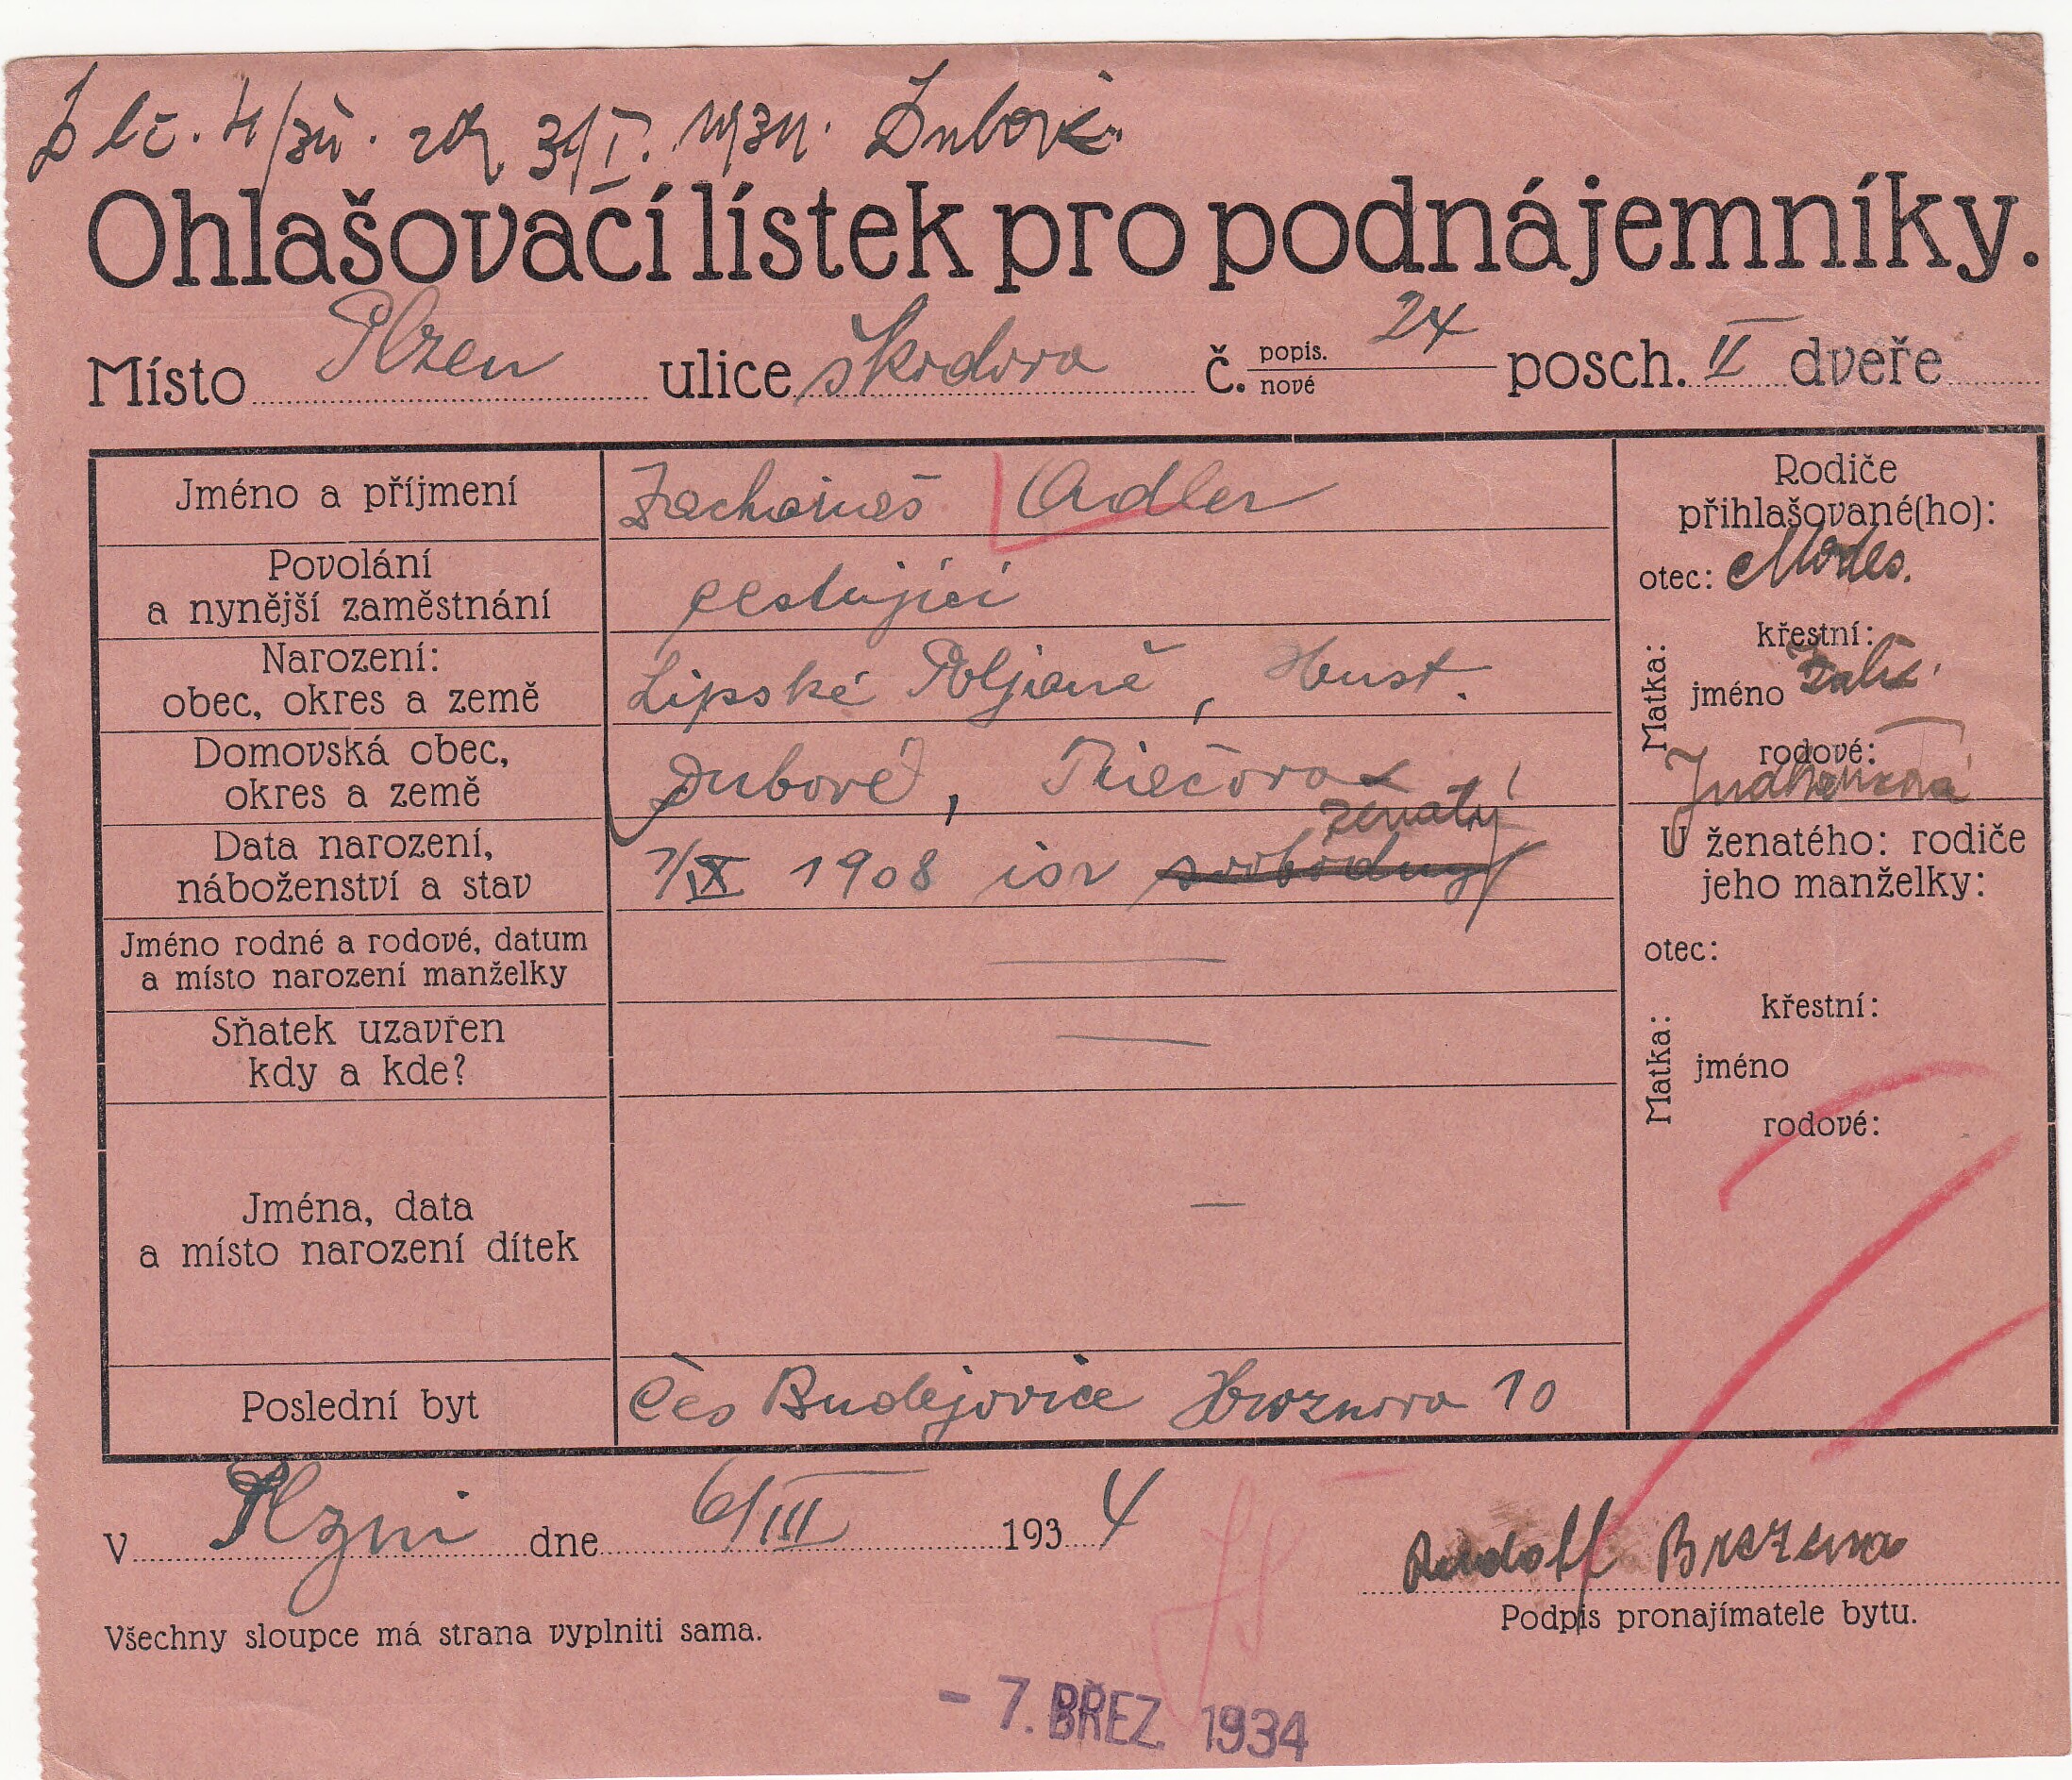 31/I. 1934. Dubové
Ohlašovací lístek pro podnájemníky.
Místo Plzen ulice škodova č. popis. nové 24 posch. II dveře
Jméno a příjmení Adler
Povolání a nynější zaměstnání cestující
Narození: obec, okres a země Lipské Poljaně, Hust.
Domovská obec, okres a země Dubové, Tiečova
Data narození, náboženství a stav 7/IX 1908 isr svobodný ženatý
Jméno rodné a rodové, datum a místo narození manželky —
Sňatek uzavřen kdy a kde? —
Jména, data a místo narození dítek —
Poslední byt Čes Budejovice Hroznova 10
Rodiče přihlašované(ho):
otec:
Matka: křestní:
jméno
rodové:
U ženatého: rodiče jeho manželky:
otec:
Matka: křestní:
jméno
rodové:
V Plzni dne 6/III 1934
Rudolf Brezina
Podpis pronajímatele bytu.
Všechny sloupce má strana vyplniti sama.
- 7. BŘEZ. 1934